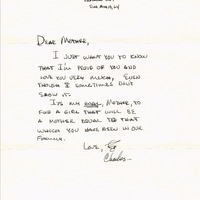 Dear Mother,
I just want you to know
that I'm proud of you and
love you very much, even
though I sometimes don't
show it.
It's my hope, Mother, to
find a girl that will be
a mother equal to that
which you have been in our
family.
Love,
Charles